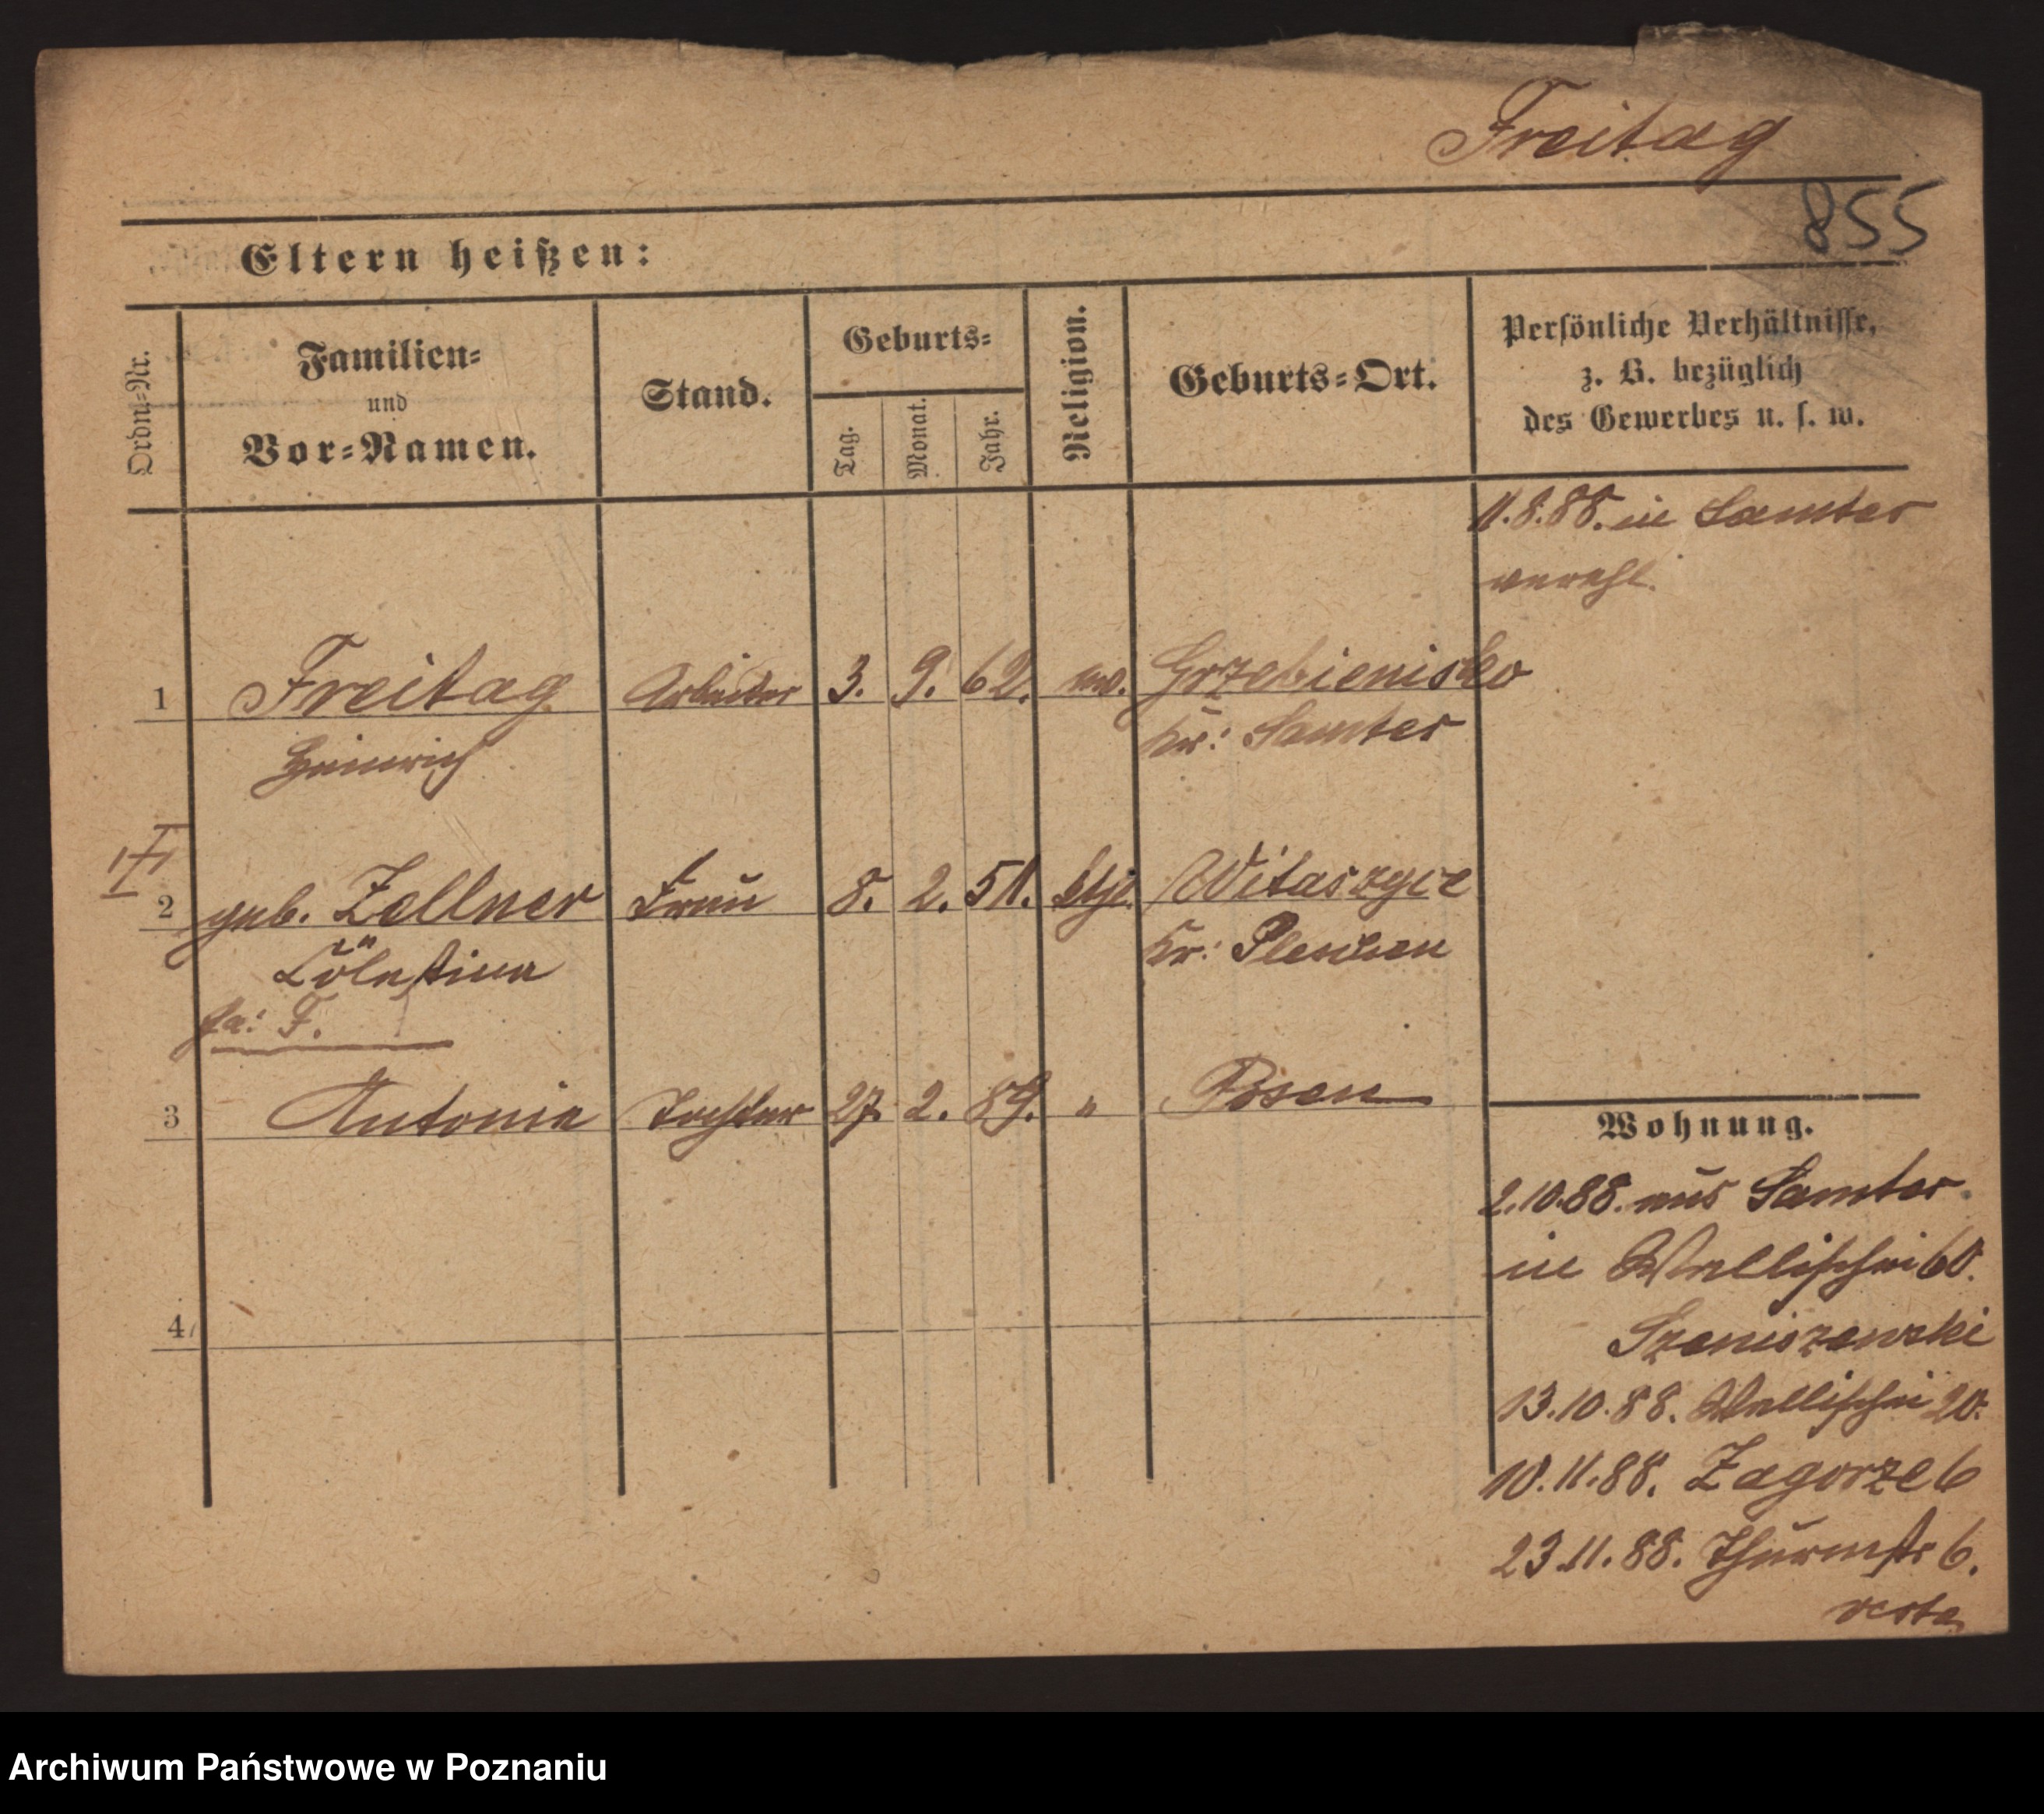 Freitag
855
Eltern heißen:
Ordn.-Nr.
Familien-
und
Vor-Namen.
Stand.
Geburts-
Tag.
Monat.
Jahr.
Religion.
Geburts-Ort.
Persönliche Verhältnisse,
z. B. bezüglich
des Gewerbes u. s. w.
11.8.88. in Samter
verehl.
1 Freitag Arbeiter 3. 9. 62. ev. Grzebienisko
Heinrich Kr: Samter
2 geb. Zellner Frau 8. 2. 51. kth. Witaszyce
Cölestina Kr: Pleschen
F.
3 Antonie Tochter 27. 2. 89. " Posen
4
Wohnung.
2.10.88. aus Samter
in Wallischei 60.
Szeniszewski
13.10.88. Wallischei 20.
10.11.88. Zagorze 6
23.11.88. Thurmstr 6.
Archiwum Państwowe w Poznaniu